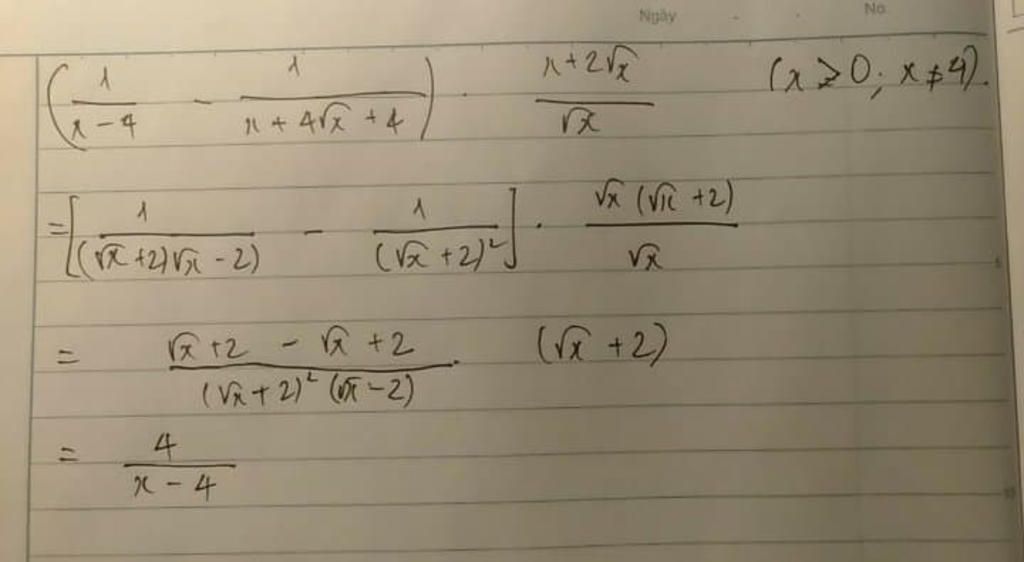 Ngày - - No
(1/(x-4) - 1/(x+4√x+4)) · (x+2√x)/√x (x ≥ 0; x ≠ 4).
= [1/((√x+2)√x-2) - 1/(√x+2)²] · √x(√x+2)/√x
= (√x+2 - √x+2)/((√x+2)²(√x-2)) · (√x+2)
= 4/(x-4)